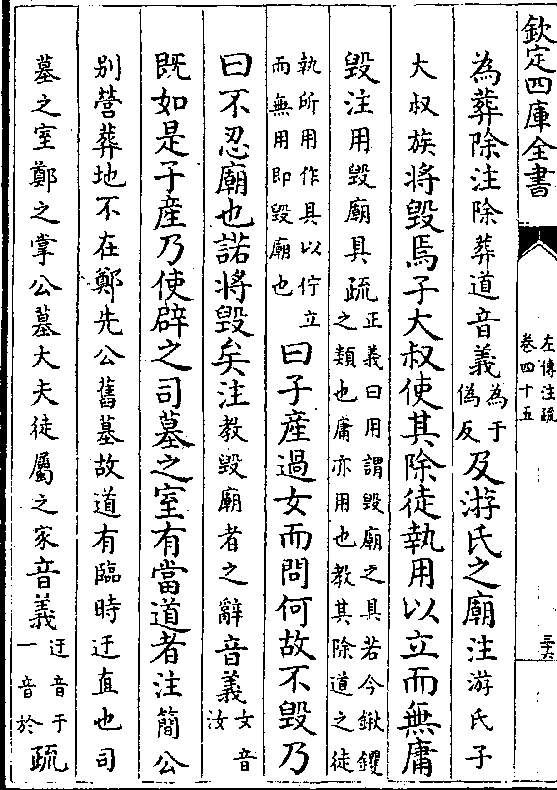 欽定四庫全書
左傳注疏
卷四十五
三十六
為葬除注除葬道音義為于
偽反及游氏之廟注游氏子
大叔族將毀焉子大叔使其除徒執用以立而無庸
毀注用毀廟具疏正義曰用謂毀廟之具若今鍬钁
之類也庸亦用也教其除道之徒
執所用作具以佇立
而無用即毀廟也曰子產過女而問何故不毀乃
曰不忍廟也諾將毀矣注教毀廟者之辭音義女音
汝
既如是子產乃使辟之司墓之室有當道者注簡公
別營葬地不在鄭先公舊墓故道有臨時迂直也司
墓之室鄭之掌公墓大夫徒屬之家音義迂音于
一音於疏